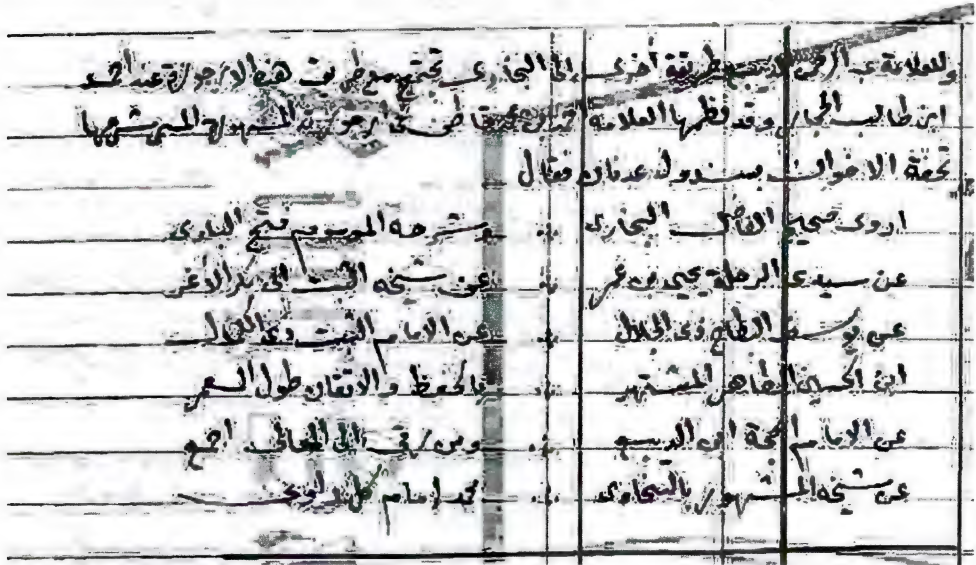 وللعلامة عبد الرحمن الديبع طريقة أخرى إلى البخاري تجتمع مع طريق هذه الارجوزة عند أحمد
ابن طالب الحجار وقد نظمها العلامة أحمد بن محمد قاطن في ارجوزته المشهورة المسمى شرحها
تحفة الاخوان بسند ولد عدنان فقال
اروى صحيح البخارى ∴ وشرحه الموسوم فتح البارى
عن سيدى الرحلة يحيى بن عمر ∴ عن شيخه أبى بكر الأغر
عن يوسف البطاح ذى الجلال ∴ عن الامام الثبت ذى
ابن الحسين الطاهر المشتهر ∴ بالحفظ والاتقان طول العمر
عن الامام الحجة ابن الديبع ∴ ومن رقى الى المعالى اجمع
عن شيخه المشهور بالسخاوى ∴ محمد إمام كل راوى